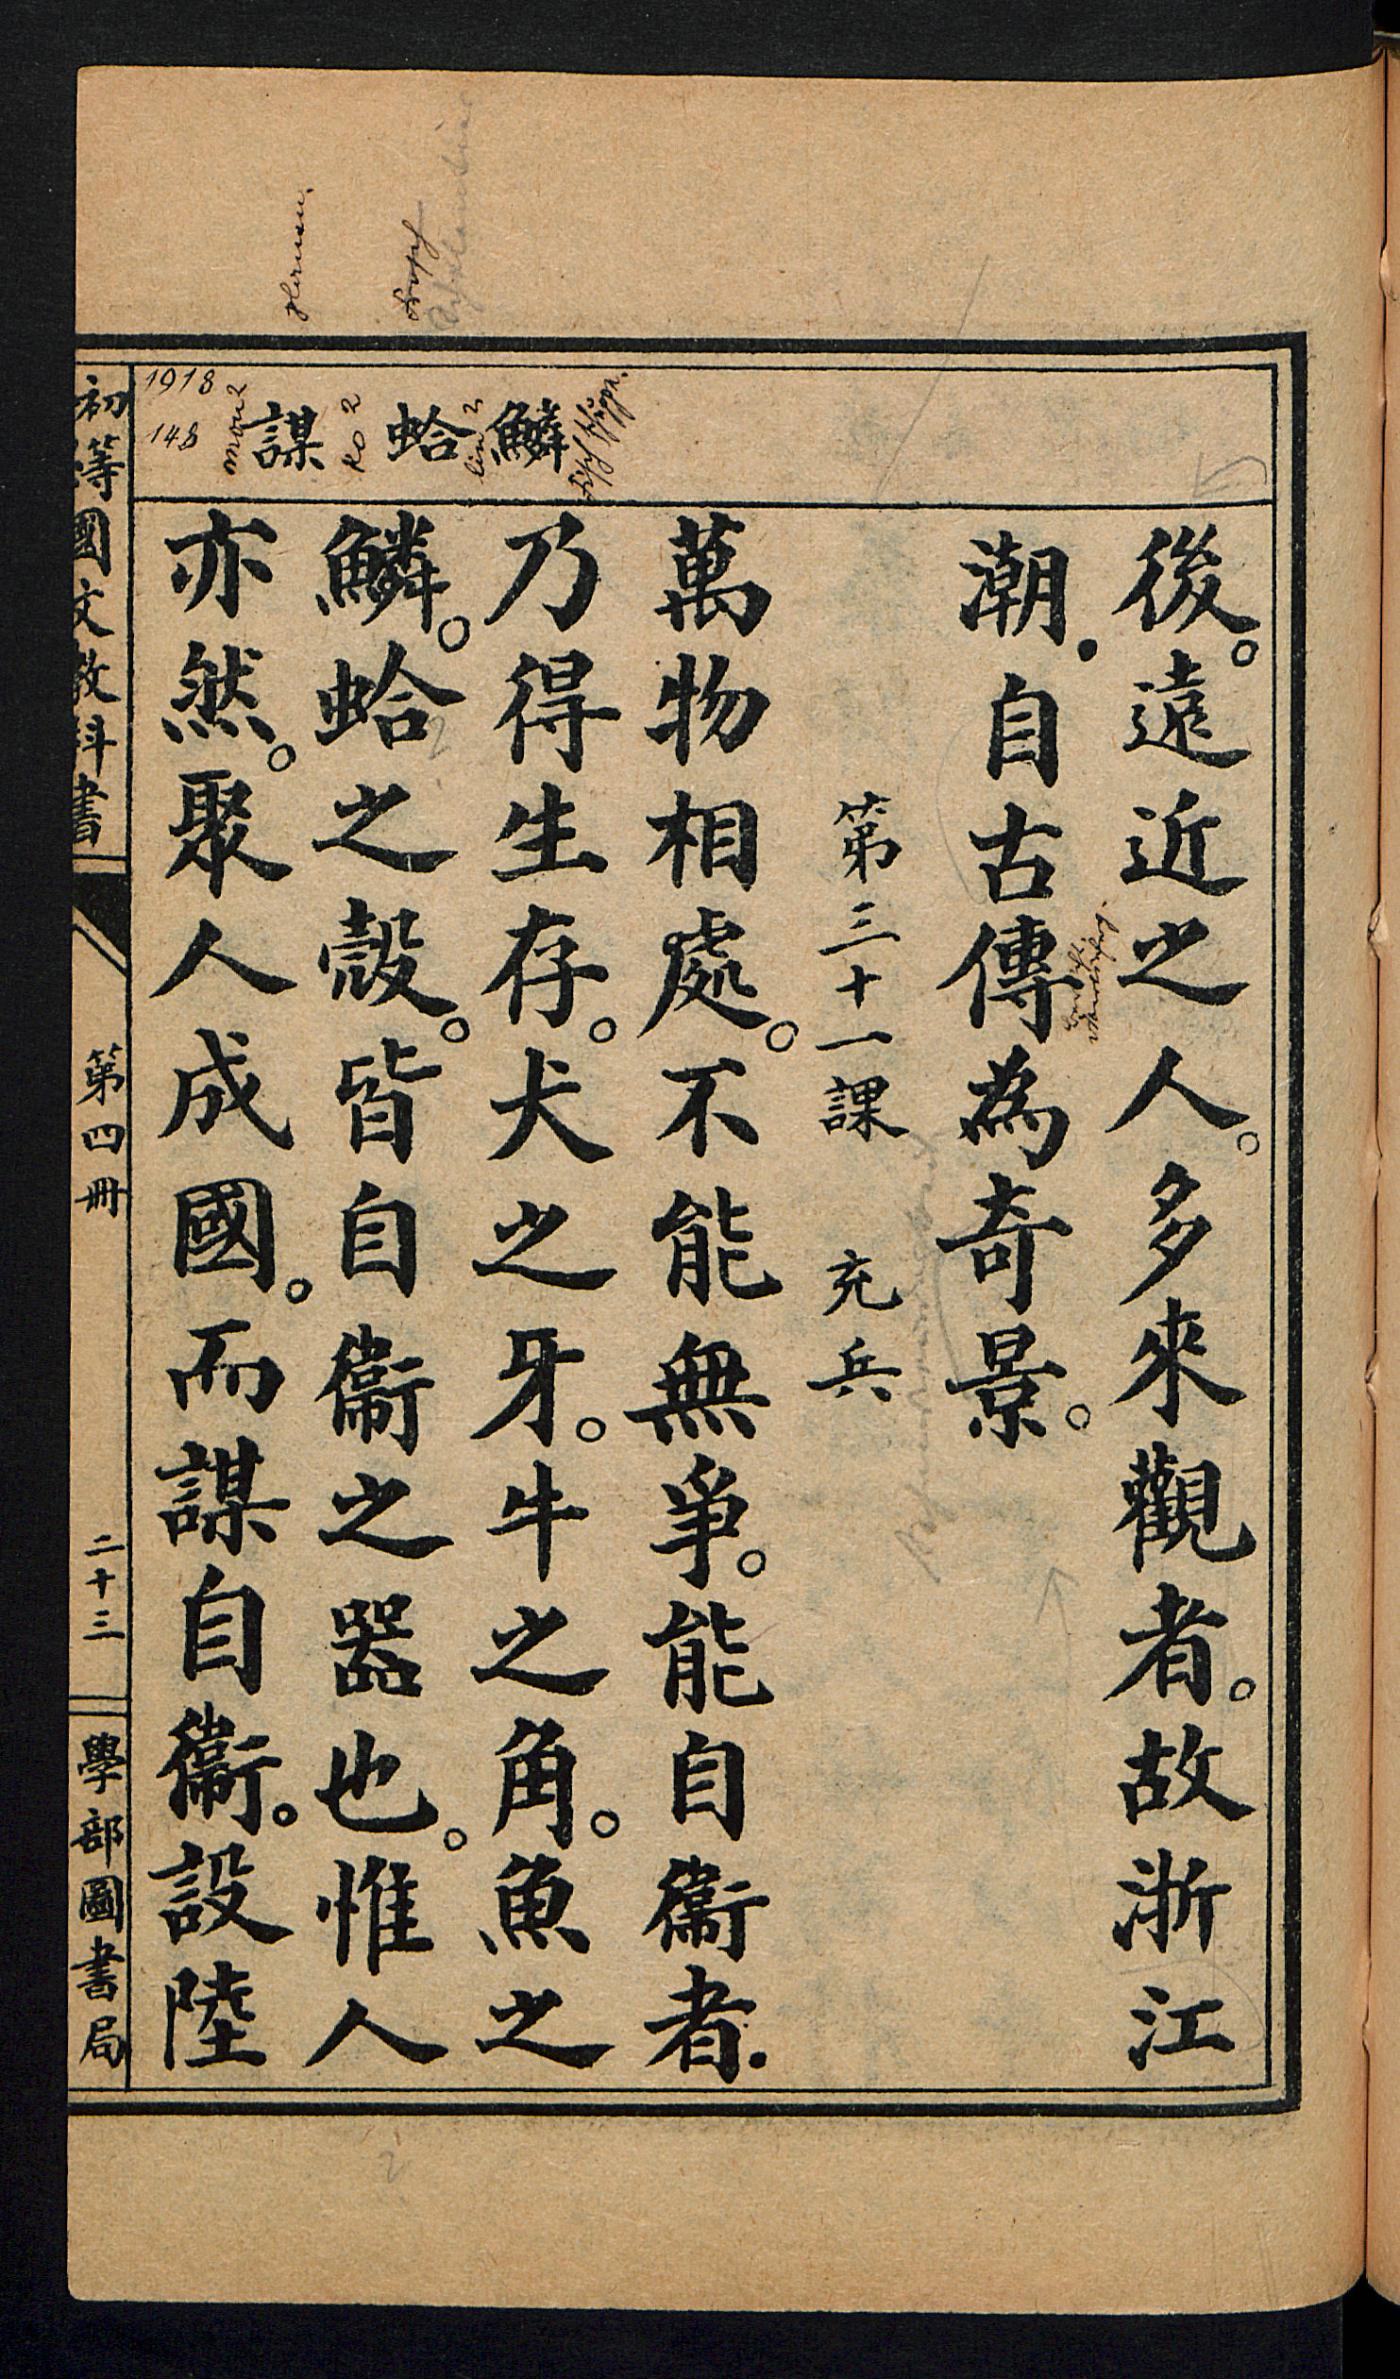 鱗
蛤
謀
lin2
ko2
mou2
1918
148
後。遠近之人。多來觀者。故浙江
潮.自古傳為奇景。
第三十一課 充兵
萬物相處。不能無爭。能自衞者.
乃得生存。犬之牙。牛之角。魚之
鱗。蛤之殼。皆自衞之器也。惟人
亦然。聚人成國。而謀自衞。設陸
初等國文教科書
第四冊
二十三
學部圖書局